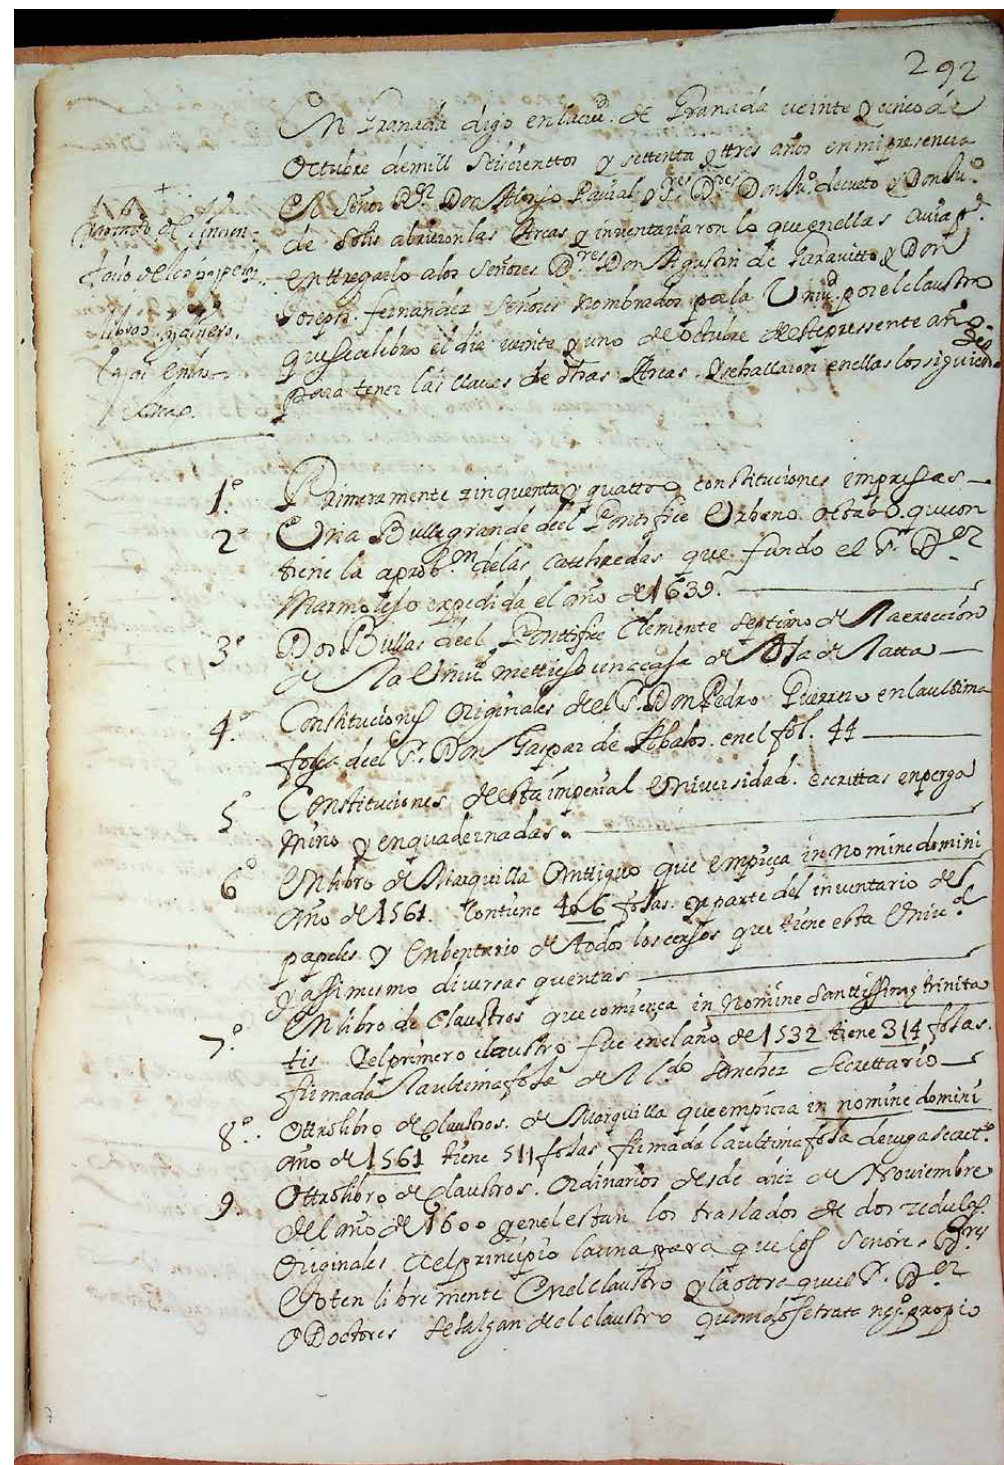 292
En Granada digo en la ciud. de Granada veinte y cinco de
Octubre de mill seiscienttos y settenta y ttres años en mi presencia
El Señor Dor Don Alonso y Sres Dres Don Juo. decueto y Don Juo.
de Solis abrieron las Arcas y inventariaron lo que en ellas avia pa.
enttregarlo a los Señores Dres Don Agustin de Garavitto y Don
Joseph. fernandez Señores nombrados por la Univd. por el claustro
que se celebro el dia veinte y uno de octubre deste pressente año.
para tener las llaves de dhas Arcas. Y se hallaron en ellas los siguien-
papeles
libros y dinero.
1º. Primeramente zinquenta y quattro constituciones impressas
2º Una Bulla grande del Pontifice Urbano octabo. que con
tiene la aprobon. de las cathredas que fundo el Sr. Dor
Marmolejo expedida el año de 1639.
3º Dos Bullas del Ponttifice Clemente septimo de la ereccion
de la Univd. mettidas en una caxa de oja de latta
4º. Constituciones Originales del Sr. Don Pedro Guerrero en la ultima
foja del Sr. Don Gaspar de Abalos. en el fol. 44
5º Constituciones de esta imperial Universidad. escrittas en perga
mino y enquadernadas.
6º Un libro de Marquilla Anttiguo que empieça in nomine domini
Año de 1561. Contiene 406 fojas. en parte del inventario de
papeles y Enbentario de todos los censos que tiene esta Univd.
y assimismo diversas quentas
7º. Un libro de Claustros que comiença in nomine Santtissimę trinita
tis El primero claustro fue en el año de 1532 tiene 314 fojas.
firmada la ultima foja de el Ldo Sanchez Secrettario
8º. Ottro libro de Claustros. de Marquilla que empieza in nomine domini
año de 1561 tiene 511 fojas firmada la ultima foja de vega secreto.
9. Ottro libro de claustros. Ordinarios desde diez de Noviembre
del año de 1600 y en el estan los traslados de dos zedulas.
Originales Al principio la una para que los Señores Dres
Voten libremente En el claustro y la ottra que el Sr. Dor
o Doctores se salgan del claustro quando se trata nego. propio